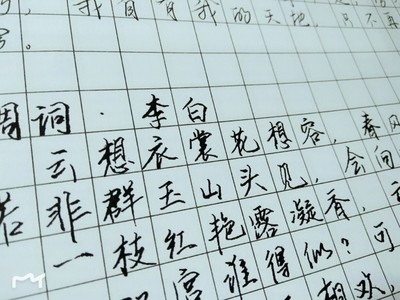 我自有我的天地,只不再
调词·李白
云想衣裳花想容,春风
若非群玉山头见,会向
一枝红艳露凝香,
宫谁得似?可
相欢